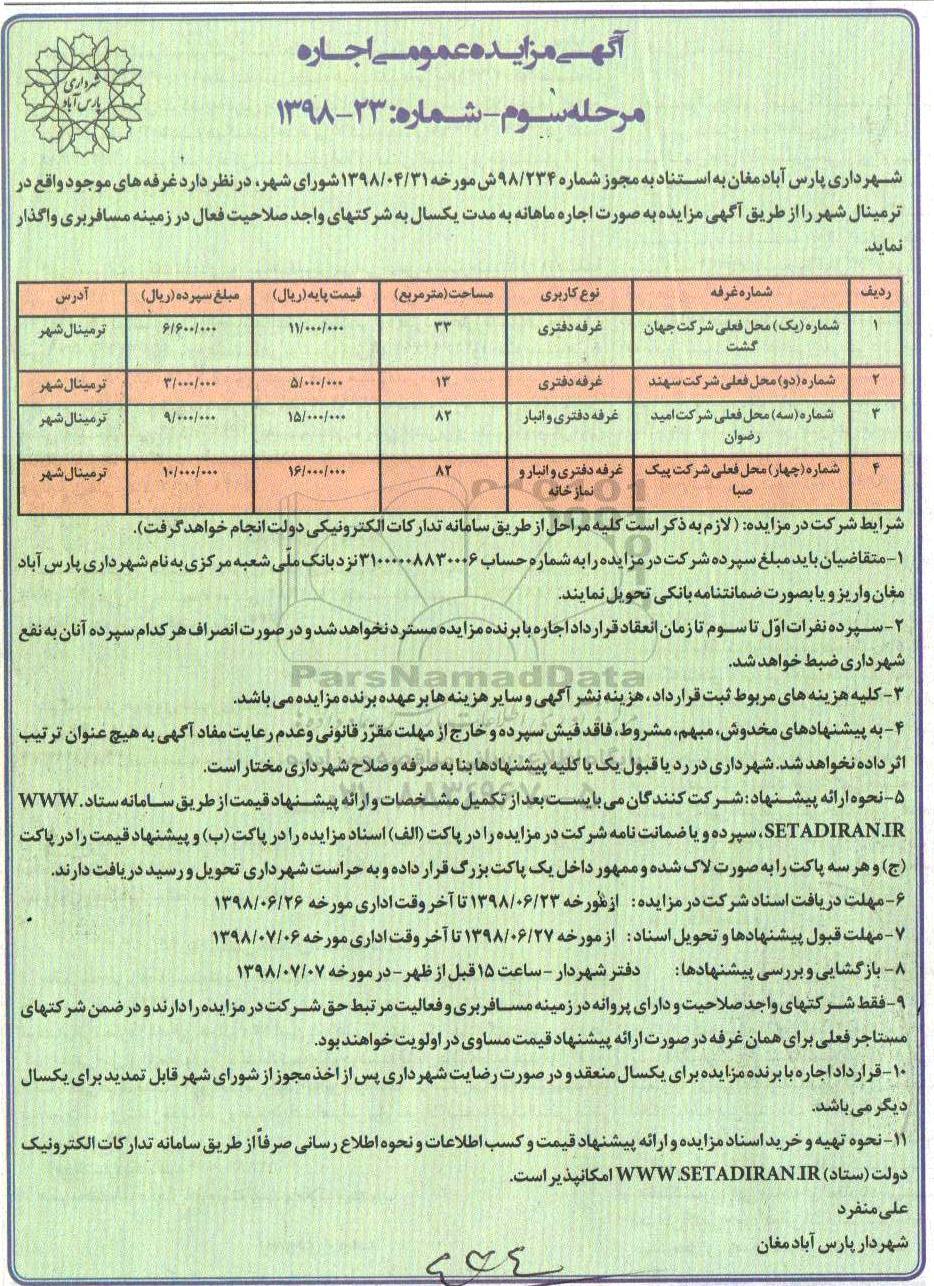 آگهی مزایده عمومی اجاره
شهرداری
پارس آباد
مرحله سوم - شماره: ۲۳-۱۳۹۸
شهرداری پارس آباد مغان به استناد به مجوز شماره ۹۸/۲۳۴ش مورخه ۱۳۹۸/۰۴/۳۱ شورای شهر، در نظر دارد غرفه های موجود واقع در
ترمینال شهر را از طریق آگهی مزایده به صورت اجاره ماهانه به مدت یکسال به شرکتهای واجد صلاحیت فعال در زمینه مسافربری واگذار
نماید.
ردیف شماره غرفه نوع کاربری مساحت (مترمربع) قیمت پایه (ریال) مبلغ سپرده (ریال) آدرس
۱ شماره (یک) محل فعلی شرکت جهان غرفه دفتری ۳۳ ۱۱/۰۰۰/۰۰۰ ۶/۶۰۰/۰۰۰ ترمینال شهر
گشت
۲ شماره (دو) محل فعلی شرکت سهند غرفه دفتری ۱۳ ۵/۰۰۰/۰۰۰ ۳/۰۰۰/۰۰۰ ترمینال شهر
۳ شماره (سه) محل فعلی شرکت امید غرفه دفتری و انبار ۸۲ ۱۵/۰۰۰/۰۰۰ ۹/۰۰۰/۰۰۰ ترمینال شهر
رضوان
۴ شماره (چهار) محل فعلی شرکت پیک غرفه دفتری و انبار و ۸۲ ۱۶/۰۰۰/۰۰۰ ۱۰/۰۰۰/۰۰۰ ترمینال شهر
صبا نمازخانه
شرایط شرکت در مزایده: (لازم به ذکر است کلیه مراحل از طریق سامانه تدارکات الکترونیکی دولت انجام خواهد گرفت).
۱- متقاضیان باید مبلغ سپرده شرکت در مزایده را به شماره حساب ۳۱۰۰۰۰۰۸۸۳۰۰۰۶ نزد بانک ملّی شعبه مرکزی به نام شهرداری پارس آباد
مغان واریز و یا بصورت ضمانتنامه بانکی تحویل نمایند.
۲- سپرده نفرات اوّل تا سوم تا زمان انعقاد قرارداد اجاره با برنده مزایده مسترد نخواهد شد و در صورت انصراف هر کدام سپرده آنان به نفع
شهرداری ضبط خواهد شد.
ParsNamadData
۳- کلیه هزینه های مربوط ثبت قرارداد، هزینه نشر آگهی و سایر هزینه ها بر عهده برنده مزایده می باشد.
۴- به پیشنهادهای مخدوش، مبهم، مشروط، فاقد فیش سپرده و خارج از مهلت مقرّر قانونی و عدم رعایت مفاد آگهی به هیچ عنوان ترتیب
اثر داده نخواهد شد. شهرداری در رد یا قبول یک یا کلیه پیشنهادها بنا به صرفه و صلاح شهرداری مختار است.
۵- نحوه ارائه پیشنهاد: شرکت کنندگان می بایست بعد از تکمیل مشخصات و ارائه پیشنهاد قیمت از طریق سامانه ستاد WWW.
SETADIRAN.IR، سپرده و یا ضمانت نامه شرکت در مزایده را در پاکت (الف) اسناد مزایده را در پاکت (ب) و پیشنهاد قیمت را در پاکت
(ج) و هر سه پاکت را به صورت لاک شده و ممهور داخل یک پاکت بزرگ قرار داده و به حراست شهرداری تحویل و رسید دریافت دارند.
۶- مهلت دریافت اسناد شرکت در مزایده: از مورخه ۱۳۹۸/۰۶/۲۳ تا آخر وقت اداری مورخه ۱۳۹۸/۰۶/۲۶
۷- مهلت قبول پیشنهادها و تحویل اسناد: از مورخه ۱۳۹۸/۰۶/۲۷ تا آخر وقت اداری مورخه ۱۳۹۸/۰۷/۰۶
۸- بازگشایی و بررسی پیشنهادها: دفتر شهردار - ساعت ۱۵ قبل از ظهر - در مورخه ۱۳۹۸/۰۷/۰۷
۹- فقط شرکتهای واجد صلاحیت و دارای پروانه در زمینه مسافربری و فعالیت مرتبط حق شرکت در مزایده را دارند و در ضمن شرکتهای
مستاجر فعلی برای همان غرفه در صورت ارائه پیشنهاد قیمت مساوی در اولویت خواهند بود.
۱۰- قرارداد اجاره با برنده مزایده برای یکسال منعقد و در صورت رضایت شهرداری پس از اخذ مجوز از شورای شهر قابل تمدید برای یکسال
دیگر می باشد.
۱۱- نحوه تهیه و خرید اسناد مزایده و ارائه پیشنهاد قیمت و کسب اطلاعات و نحوه اطلاع رسانی صرفاً از طریق سامانه تدارکات الکترونیک
دولت (ستاد) WWW.SETADIRAN.IR امکانپذیر است.
علی منفرد
شهردار پارس آباد مغان